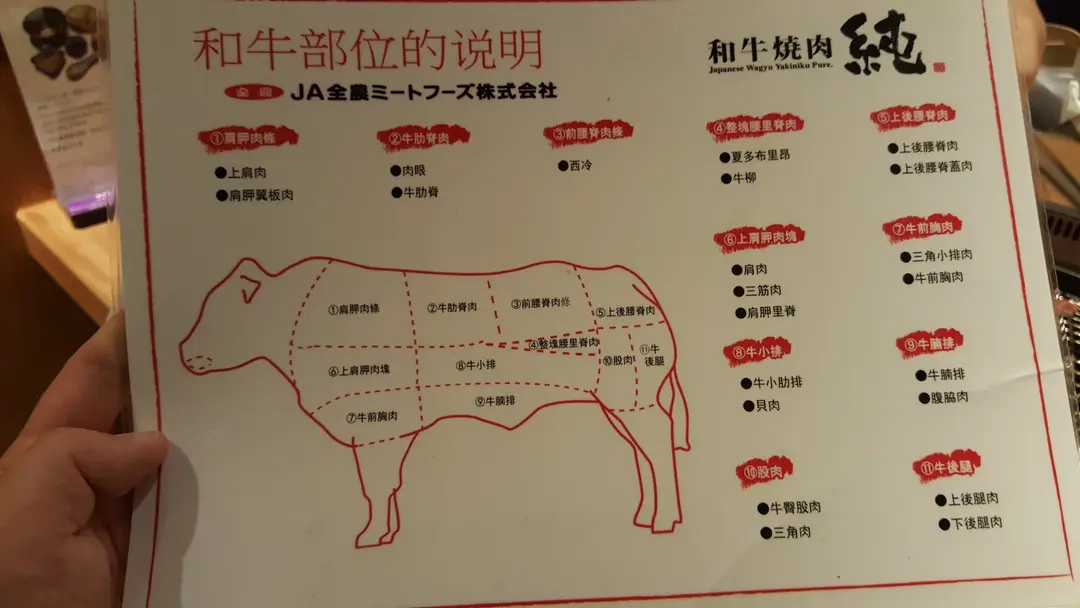 和牛部位的说明
全農 JA全農ミートフーズ株式会社
和牛焼肉 純
Japanese Wagyu Yakiniku Pure.
①肩胛肉條
●上肩肉
●肩胛翼板肉
②牛肋脊肉
●肉眼
●牛肋脊
③前腰脊肉條
●西冷
④整塊腰里脊肉
●夏多布里昂
●牛柳
⑤上後腰脊肉
●上後腰脊肉
●上後腰脊蓋肉
⑥上肩胛肉塊
●肩肉
●三筋肉
●肩胛里脊
⑦牛前胸肉
●三角小排肉
●牛前胸肉
⑧牛小排
●牛小肋排
●貝肉
⑨牛腩排
●牛腩排
●腹脇肉
⑩股肉
●牛臀股肉
●三角肉
⑪牛後腿
●上後腿肉
●下後腿肉
①肩胛肉條
②牛肋脊肉
③前腰脊肉條
④整塊腰里脊肉
⑤上後腰脊肉
⑥上肩胛肉塊
⑦牛前胸肉
⑧牛小排
⑨牛腩排
⑩股肉
⑪牛
後腿